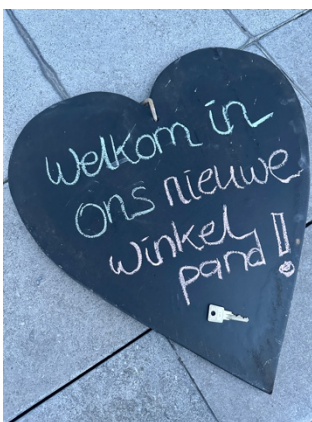 Welkom in
ons nieuwe
winkel
pand!